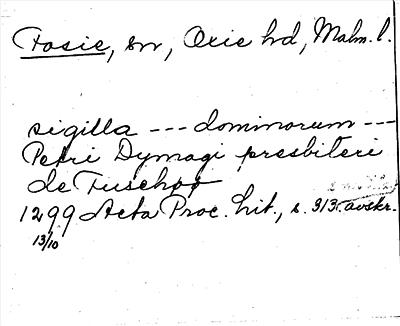 Fosie, sn, Oxie hd, Malm. l.
sigilla --- dominorum ---
Petri Dymagi presbiteri
de Fuschøø
1299 Acta Proc. Lit., s. 313. avskr.
13/10